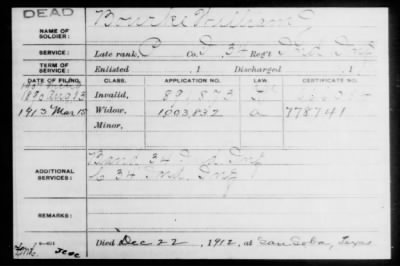 DEAD
NAME OF SOLDIER: Bourke William
SERVICE: Late rank, Co. 34 Reg't Ind. Inf
TERM OF SERVICE: Enlisted , 1 Discharged , 1
DATE OF FILING. CLASS. APPLICATION NO. CERTIFICATE NO.
Aug 13 Invalid,
1913 Mar 15 Widow, 1003,832 a 778741
Minor,
ADDITIONAL SERVICES: Band 34 Inf
C 34 Ind. Inf
REMARKS:
Died Dec 22 , 1912, at San Saba, Texas